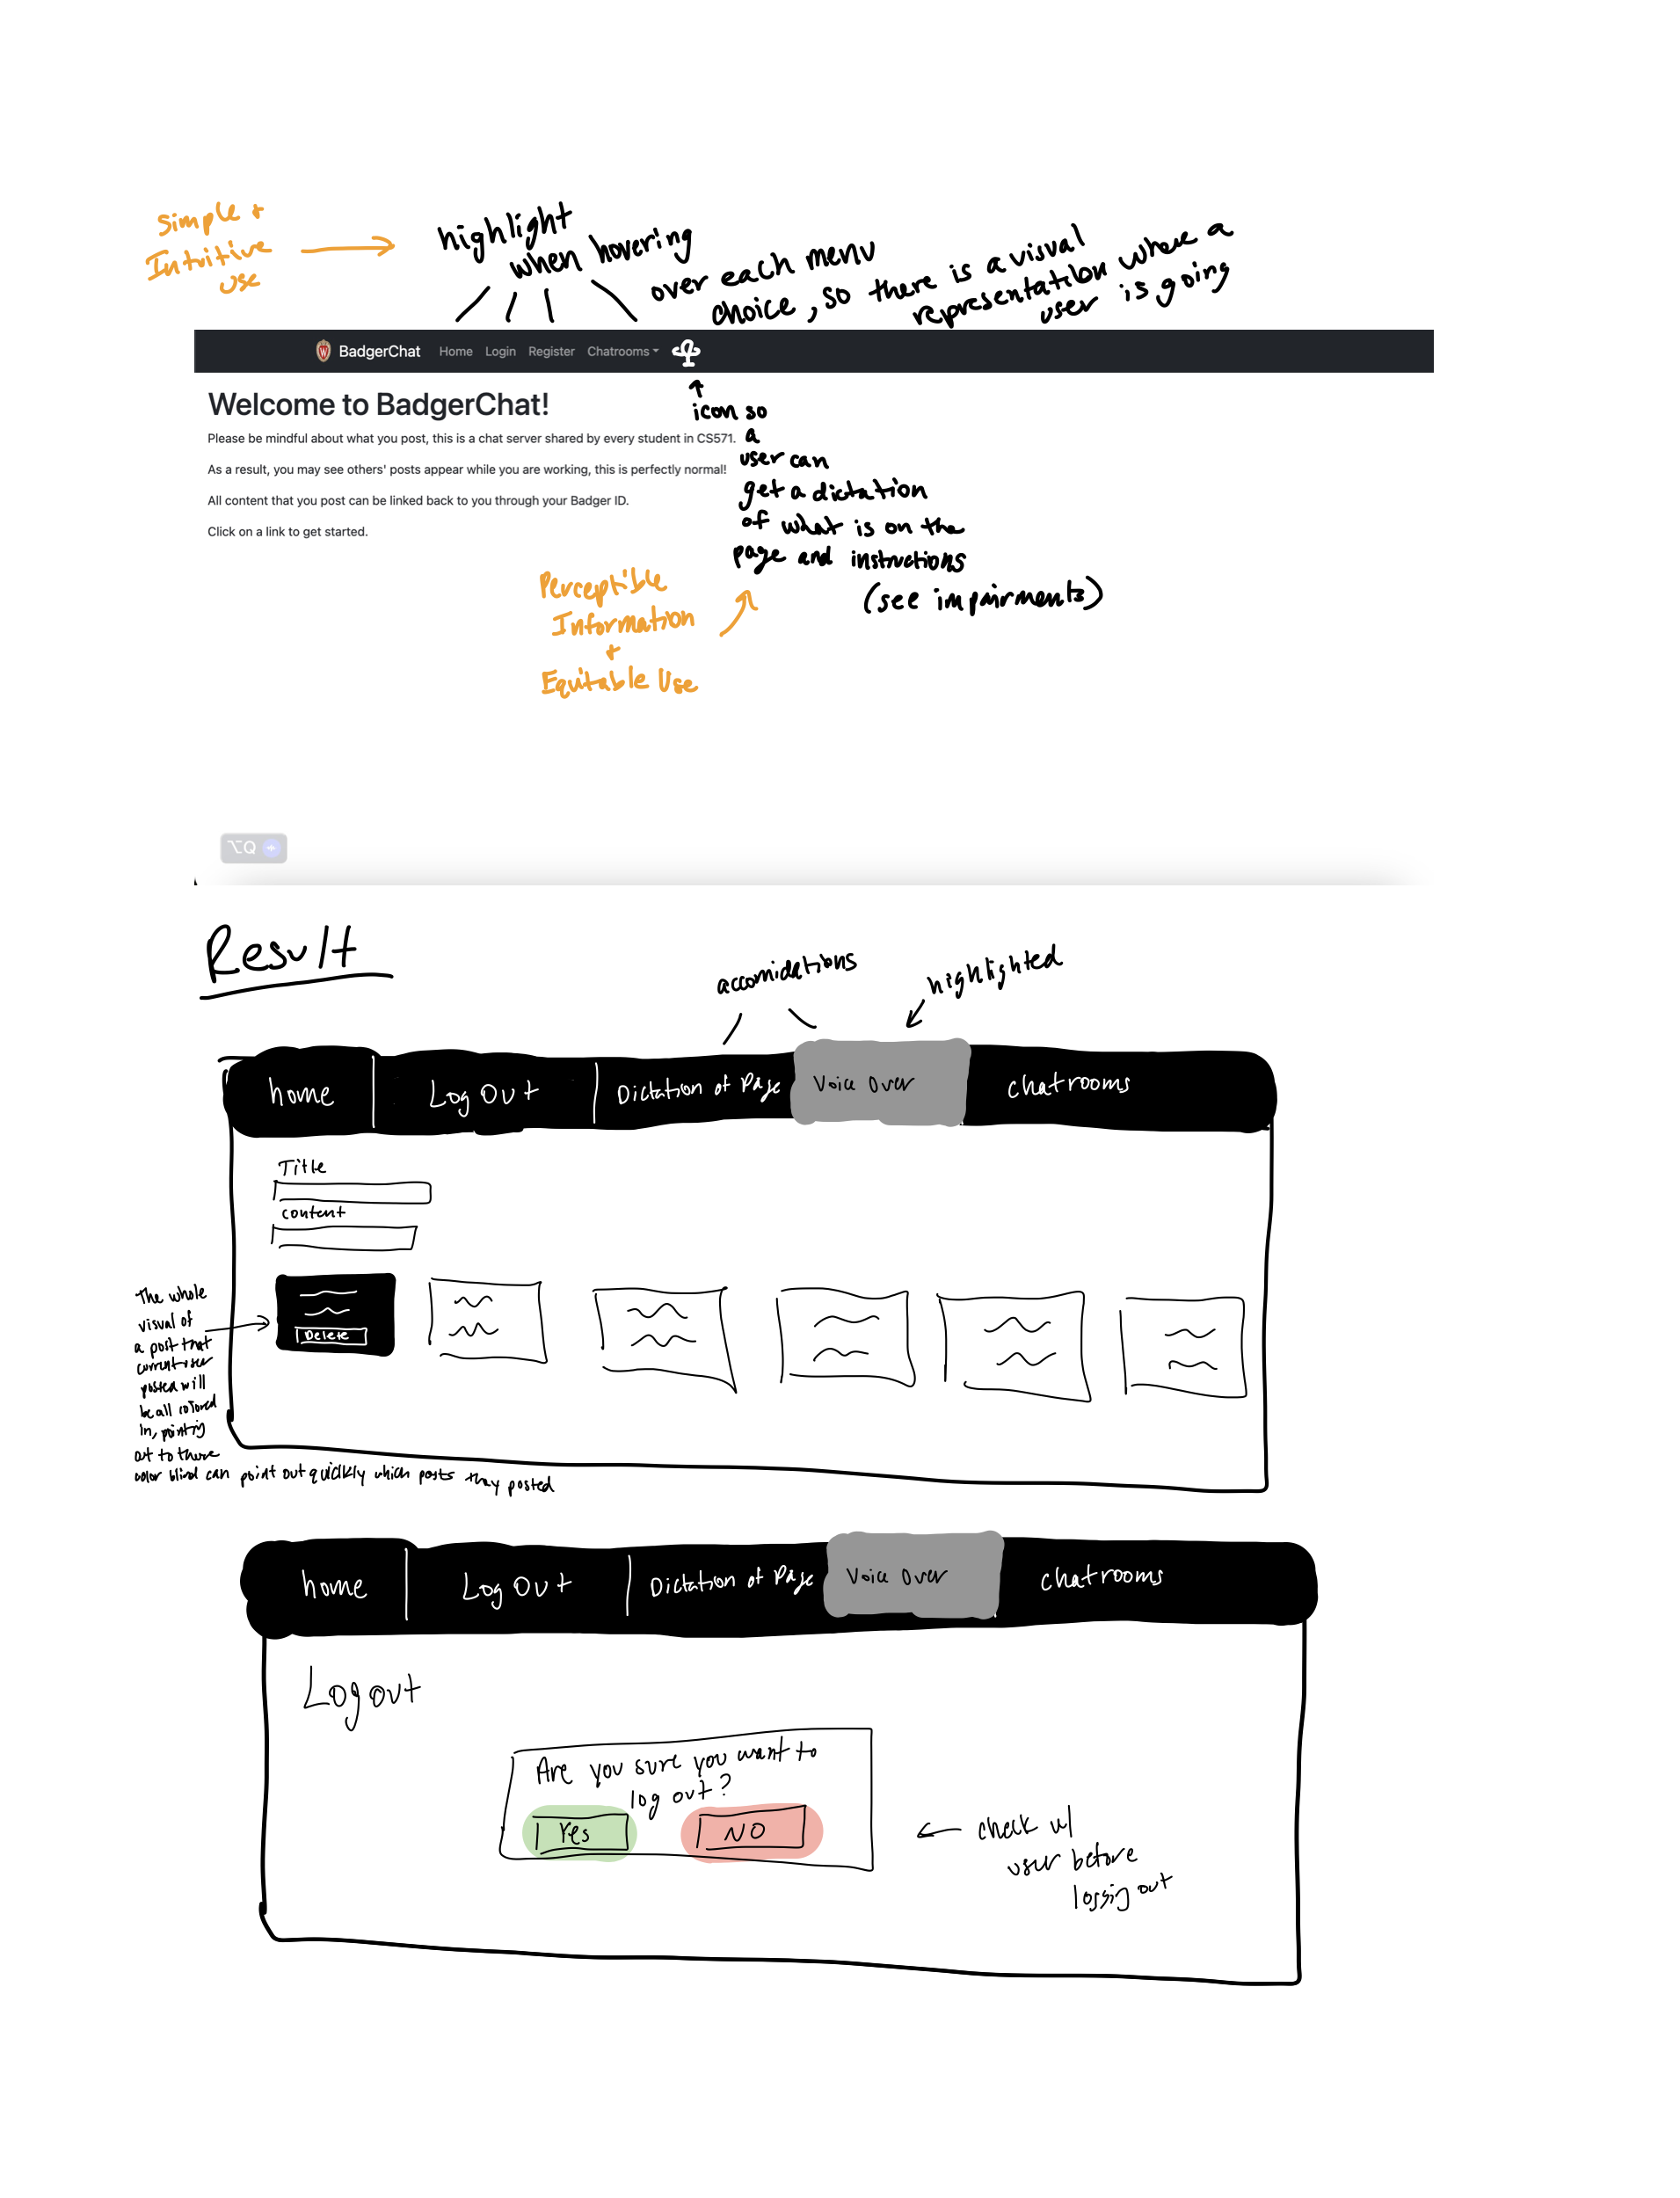 Simple +
Intuitive
use
highlight
when hovering
over each menu
choice, so there is a visual
representation where a
user is going
BadgerChat Home Login Register Chatrooms
Welcome to BadgerChat!
Please be mindful about what you post, this is a chat server shared by every student in CS571.
As a result, you may see others' posts appear while you are working, this is perfectly normal!
All content that you post can be linked back to you through your Badger ID.
Click on a link to get started.
icon so
a
user can
get a dictation
of what is on the
page and instructions
(see impairments)
Perceptible
Information
+
Equitable Use
⌥Q
Result
accomidations
highlighted
home Log Out Dictation of Page Voice Over chatrooms
Title
content
Delete
The whole
visual of
a post that
current user
posted will
be all colored
in, pointing
out to those
color blind can point out quickly which posts they posted
home Log Out Dictation of Page Voice Over chatrooms
Logout
Are you sure you want to
log out?
Yes NO
check w/
user before
logging out